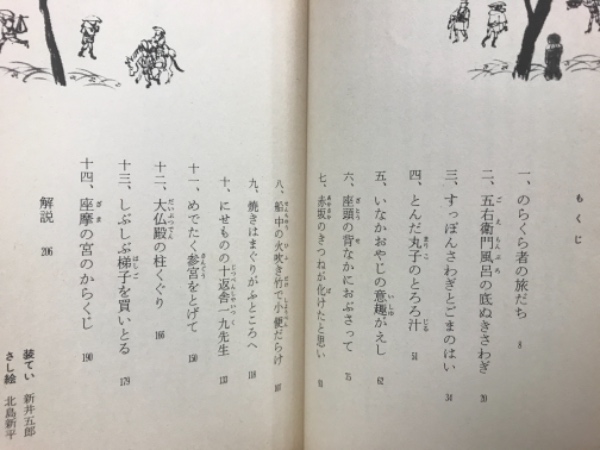 もくじ
一、のらくら者の旅だち 8
二、五右衛門風呂の底ぬきさわぎ 20
三、すっぽんさわぎとごまのはい 34
四、とんだ丸子のとろろ汁 51
五、いなかおやじの意趣がえし 62
六、座頭の背なかにおぶさって 75
七、赤坂のきつねが化けたと思い
八、船中の火吹き竹で小便だらけ
九、焼きはまぐりがふところへ 118
十、にせものの十返舎一九先生 133
十一、めでたく参宮をとげて 150
十二、大仏殿の柱くぐり 166
十三、しぶしぶ梯子を買いとる 179
十四、座摩の宮のからくじ 190
解説 206
装てい 新井五郎
さし絵 北島新平